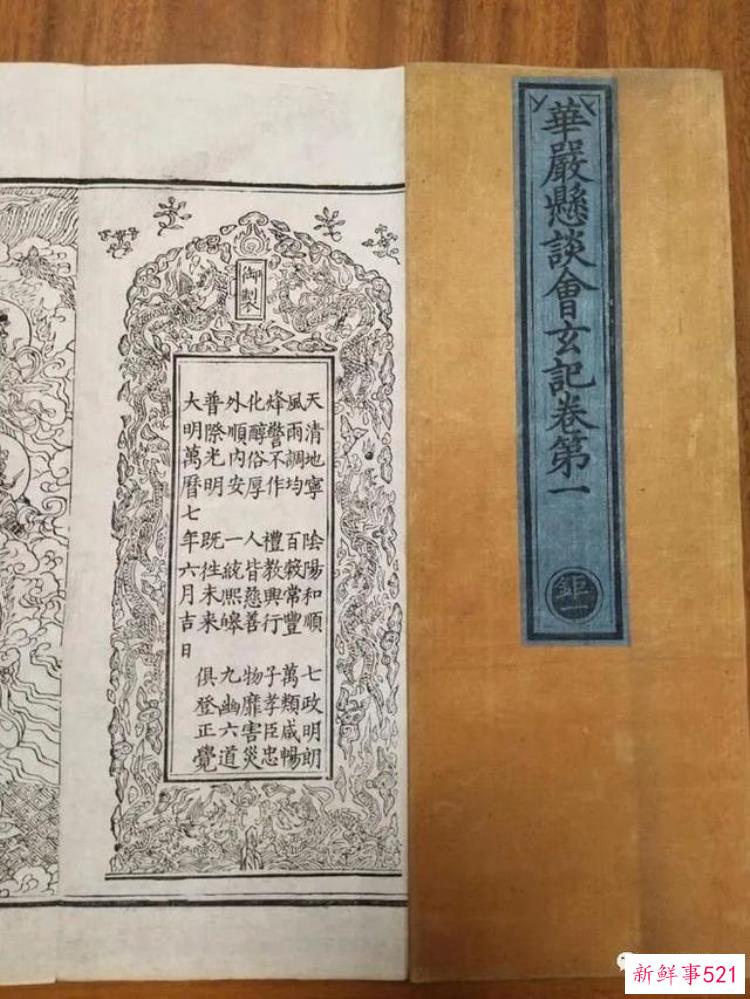 華嚴懸談會玄記卷第一
鉅一
御製
天清地寧 陰陽和順 七政明朗
風雨調均 百穀常豐 萬類咸暢
烽警不作 禮教興行 子孝臣忠
化醇俗厚 人皆慈善 物靡害災
外順內安 一統熙皞 九幽六道
普際光明 既往未來 俱登正覺
大明萬曆七年六月吉日
新鲜事521